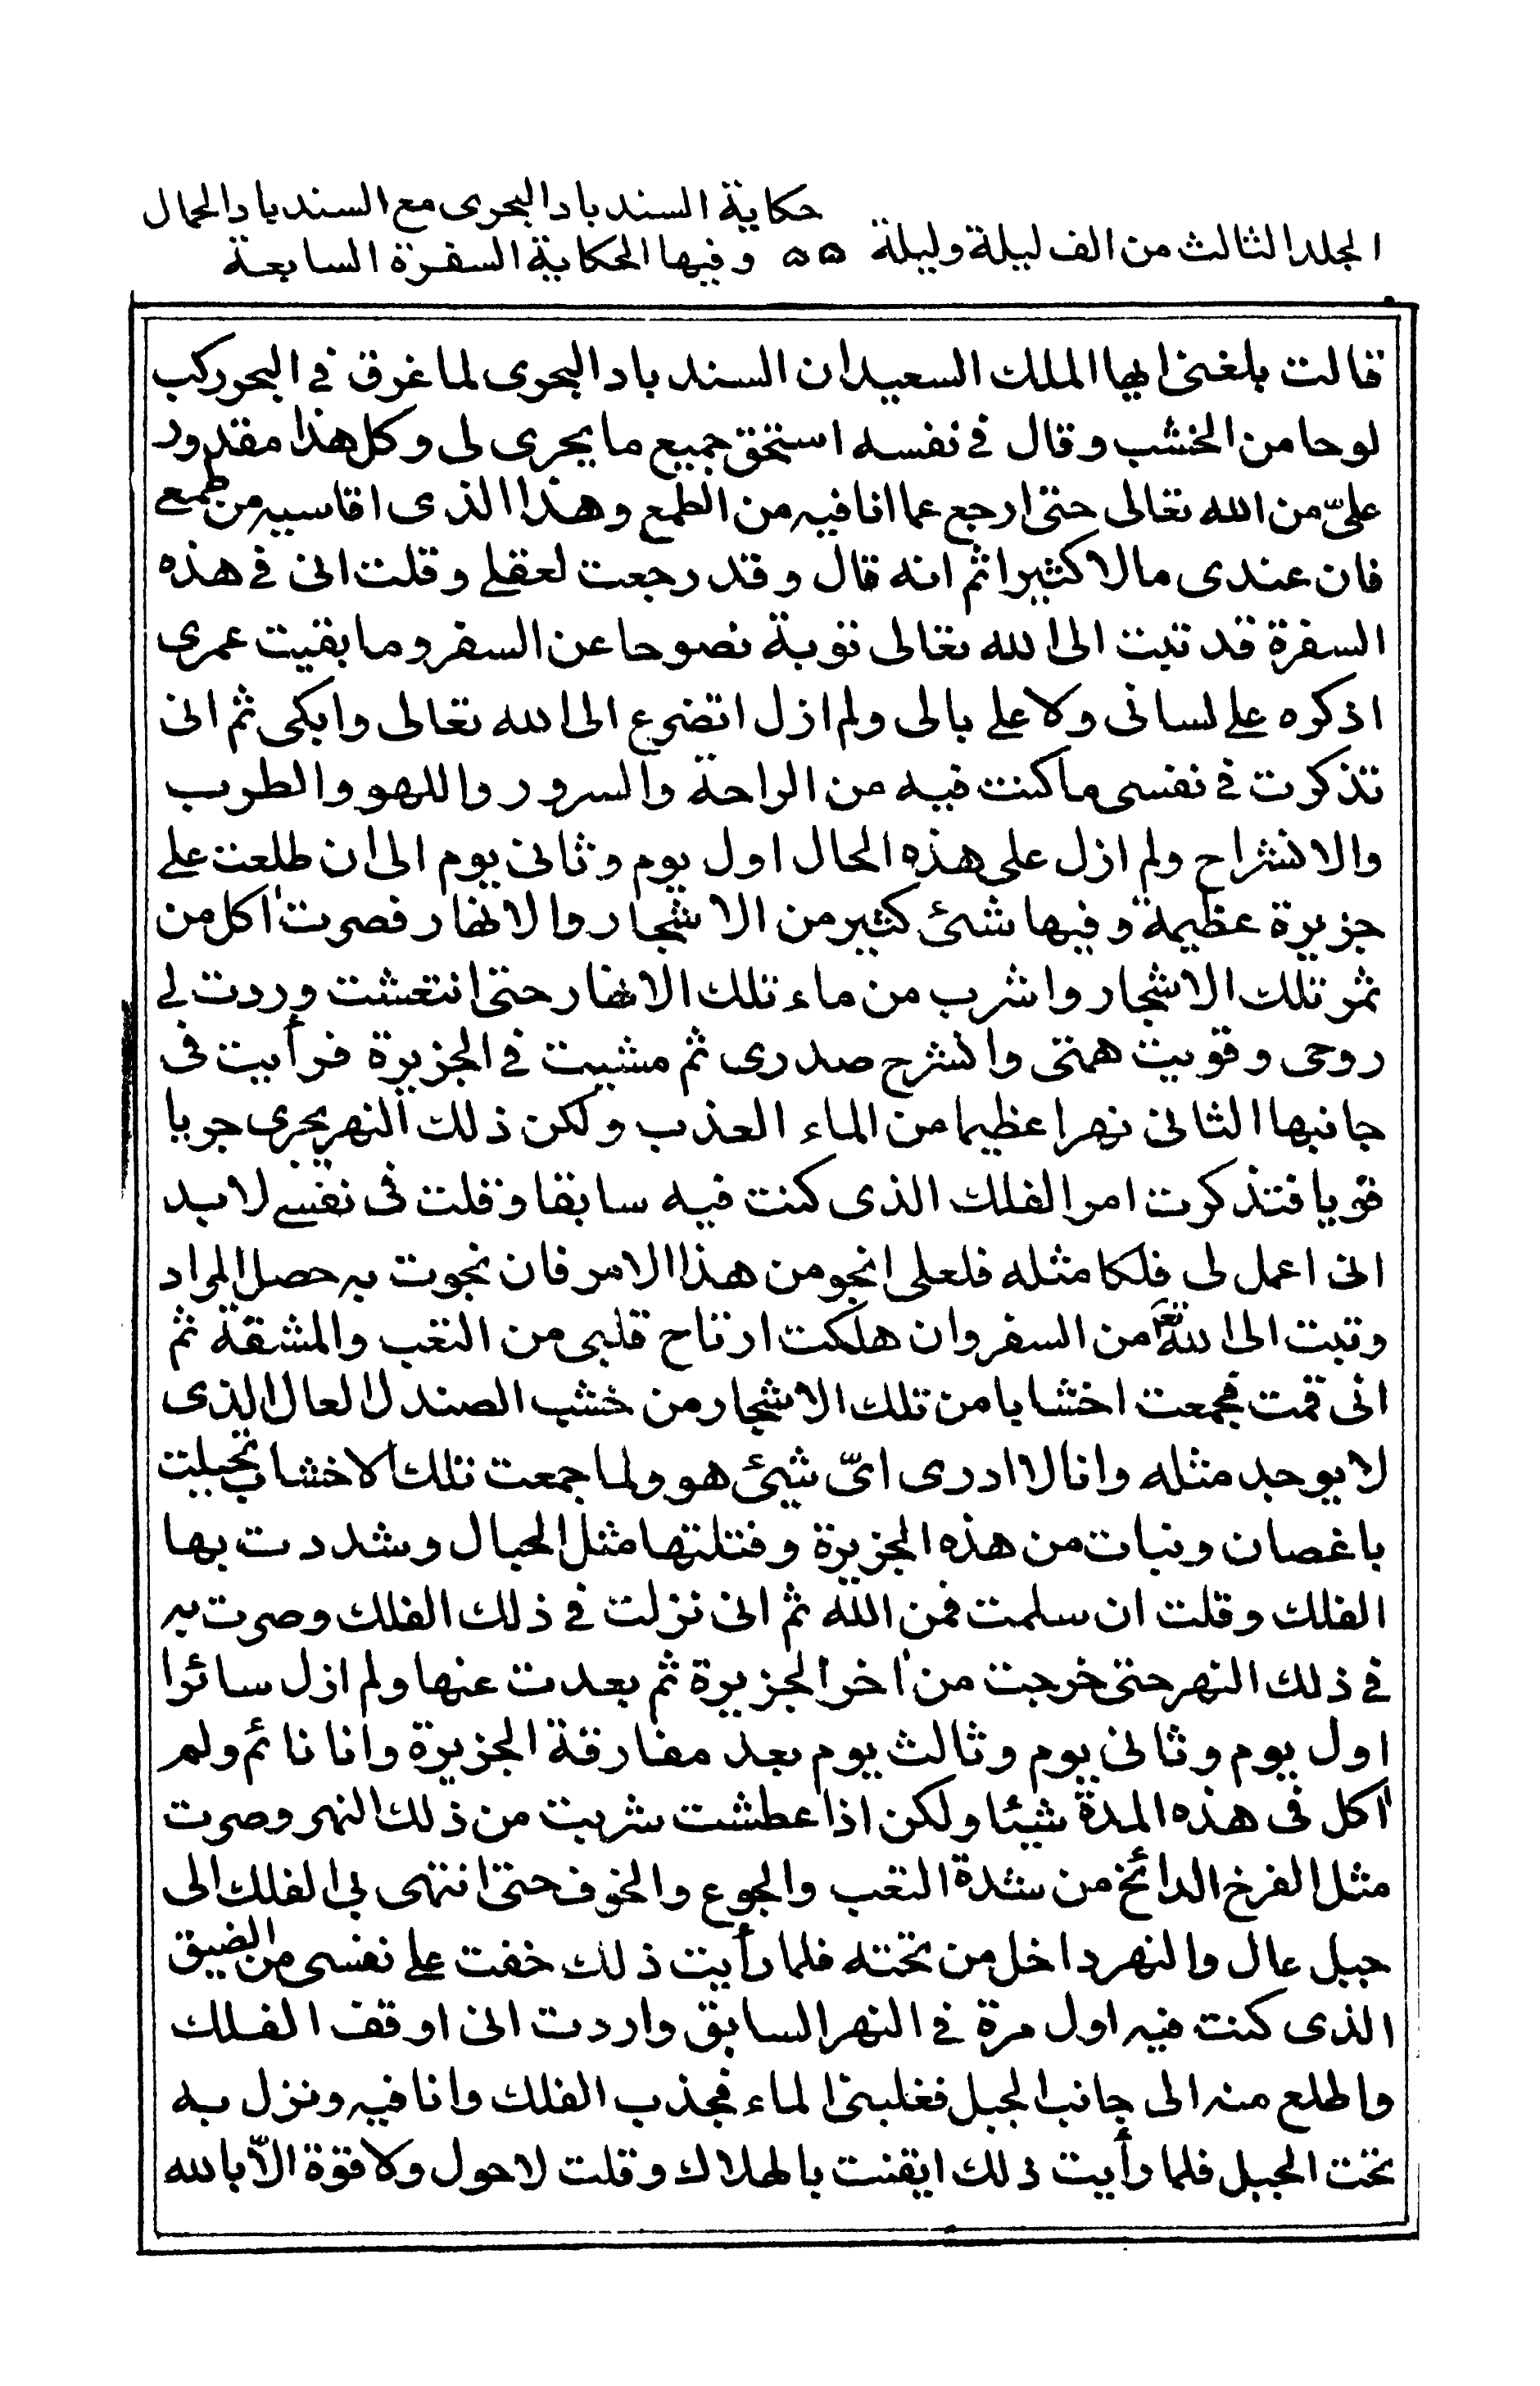 حكاية السندباد البحرى مع السندباد الحمال
المجلد الثالث من الف ليلة وليلة ۵۵ وفيها الحكاية السفرة السابعة
قالت بلغنى ايها الملك السعيد ان السندباد البحرى لما غرق فى البحر ركب
لوحا من الخشب وقال فى نفسه استحق جميع ما يجرى لى وكل هذا مقدور
علىّ من الله تعالى حتى ارجع عما انا فيه من الطمع وهذا الذى اقاسيه من طمع
فان عندى مالا كثيرا ثم انه قال وقد رجعت لعقلى وقلت انى فى هذه
السفرة قد تبت الى الله تعالى توبة نصوحا عن السفر وما بقيت عمرى
اذكره على لسانى ولا على بالى ولم ازل اتضرع الى الله تعالى وابكى ثم انى
تذكرت فى نفسى ما كنت فيه من الراحة والسرور واللهو والطرب
والانشراح ولم ازل على هذه الحال اول يوم وثانى يوم الى ان طلعت على
جزيرة عظيمة وفيها شئ كثير من الاشجار والانهار فصرت اٰكل من
ثمر تلك الاشجار واشرب من ماء تلك الانهار حتى انتعشت وردت لى
روحى وقويت همتى وانشرح صدرى ثم مشيت فى الجزيرة فرأيت فى
جانبها الثانى نهرا عظيما من الماء العذب ولكن ذلك النهر يجرى جريا
قويا فتذكرت امر الفلك الذى كنت فيه سابقا وقلت فى نفسى لا بد
انى اعمل لى فلكا مثله فلعلى انجو من هذا الامر فان نجوت به حصل المراد
وتبت الى الله تعا من السفر وان هلكت ارتاح قلبى من التعب والمشقة ثم
انى قمت فجمعت اخشابا من تلك الاشجار من خشب الصندل العال الذى
لا يوجد مثله وانا لا ادرى اىّ شيئ هو ولما جمعت تلك الاخشاب تحيلت
باغصان ونبات من هذه الجزيرة وفتلتها مثل الحبال وشددت بها
الفلك وقلت ان سلمت فمن الله ثم انى نزلت فى ذلك الفلك وصرت به
فى ذلك النهر حتى خرجت من اٰخر الجزيرة ثم بعدت عنها ولم ازل سائرا
اول يوم وثانى يوم وثالث يوم بعد مفارقة الجزيرة وانا نائم ولم
اٰكل فى هذه المدة شيئا ولكن اذا عطشت شربت من ذلك النهر وصرت
مثل الفرخ الدائخ من شدة التعب والجوع والخوف حتى انتهى بى الفلك الى
جبل عال والنهر داخل من تحته فلما رأيت ذلك خفت على نفسى من الضيق
الذى كنت فيه اول مرة فى النهر السابق واردت انى اوقف الفلك
واطلع منه الى جانب الجبل فغلبنى الماء فجذب الفلك وانا فيه ونزل به
تحت الجبل فلما رأيت ذلك ايقنت بالهلاك وقلت لا حول ولا قوة الّا بالله